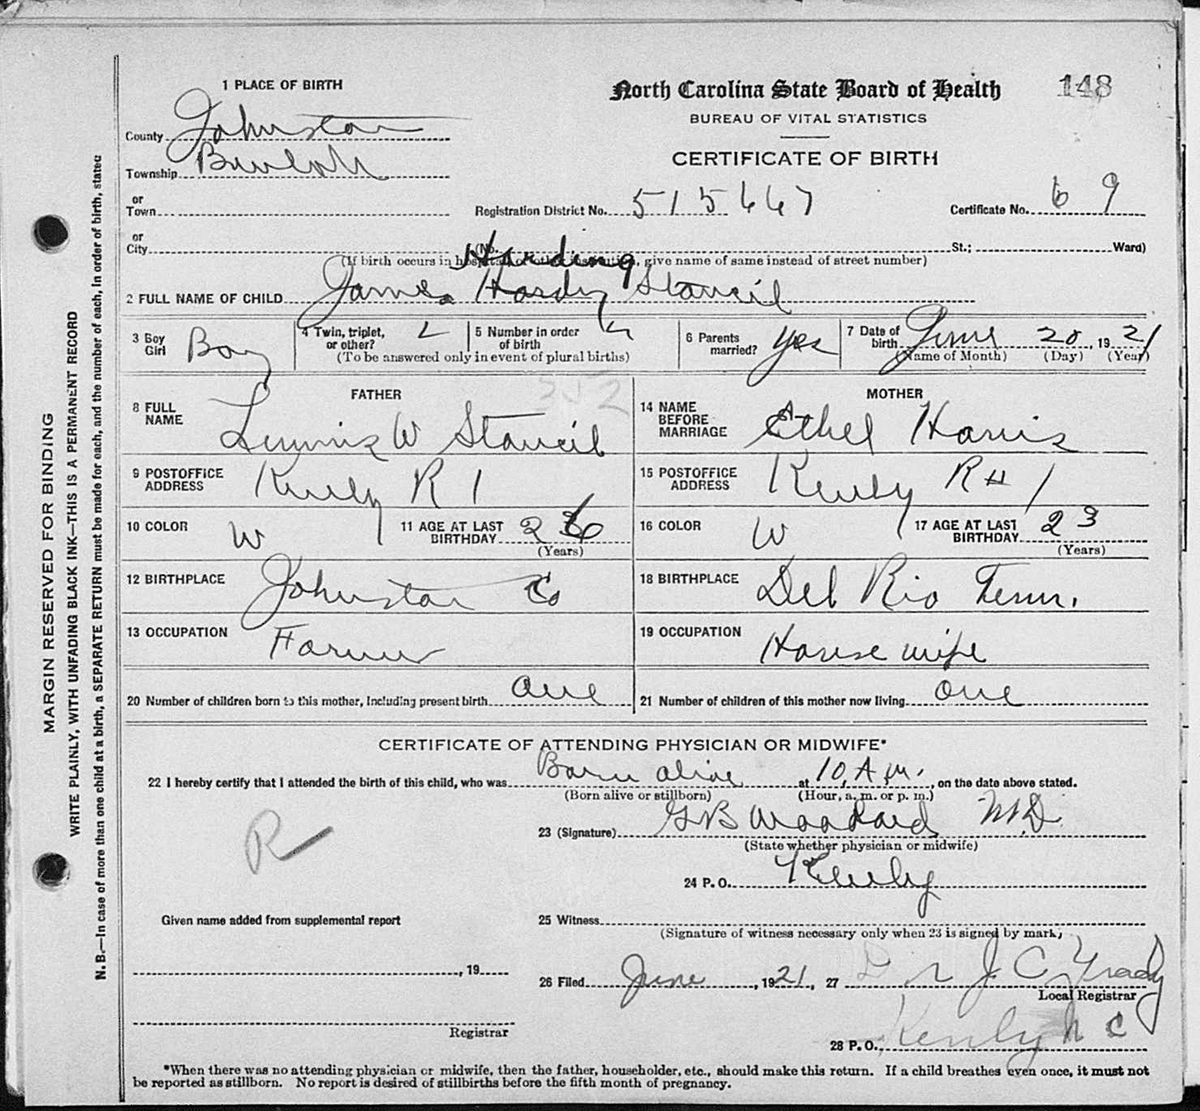 1 PLACE OF BIRTH
North Carolina State Board of Health 148
BUREAU OF VITAL STATISTICS
County Johnston
CERTIFICATE OF BIRTH
Township Beulah
or
Town
Registration District No. 515667 Certificate No. 69
or
City (No. St.; Ward)
(If birth occurs in hospital or other institution, give name of same instead of street number)
Harding
2 FULL NAME OF CHILD James Hardy Stancil
3 Boy Girl Boy 4 Twin, triplet, or other? 5 Number in order of birth 6 Parents married? yes 7 Date of birth June 20, 1921
(To be answered only in event of plural births) (Name of Month) (Day) (Year)
352
FATHER
MOTHER
8 FULL NAME W Stancil
14 NAME BEFORE MARRIAGE Ethel Harris
9 POSTOFFICE ADDRESS Kenly R 1
15 POSTOFFICE ADDRESS Kenly R # 1
10 COLOR W 11 AGE AT LAST BIRTHDAY 26 (Years)
16 COLOR W 17 AGE AT LAST BIRTHDAY 23 (Years)
12 BIRTHPLACE Johnston Co
18 BIRTHPLACE Del Rio Tenn.
13 OCCUPATION Farmer
19 OCCUPATION House wife
20 Number of children born to this mother, including present birth one
21 Number of children of this mother now living one
CERTIFICATE OF ATTENDING PHYSICIAN OR MIDWIFE*
22 I hereby certify that I attended the birth of this child, who was Born alive at 10 A.m., on the date above stated.
(Born alive or stillborn) (Hour, a. m. or p. m.)
R
23 (Signature) G B Woodard M.D.
(State whether physician or midwife)
24 P. O. Kenly
Given name added from supplemental report
25 Witness
(Signature of witness necessary only when 23 is signed by mark)
, 19
26 Filed June, 1921, 27 J C Grady
Local Registrar
Registrar
28 P. O. Kenly N C
*When there was no attending physician or midwife, then the father, householder, etc., should make this return. If a child breathes even once, it must not
be reported as stillborn. No report is desired of stillbirths before the fifth month of pregnancy.
MARGIN RESERVED FOR BINDING
WRITE PLAINLY, WITH UNFADING BLACK INK—THIS IS A PERMANENT RECORD
N. B.—In case of more than one child at a birth, a SEPARATE RETURN must be made for each, and the number of each, in order of birth, stated